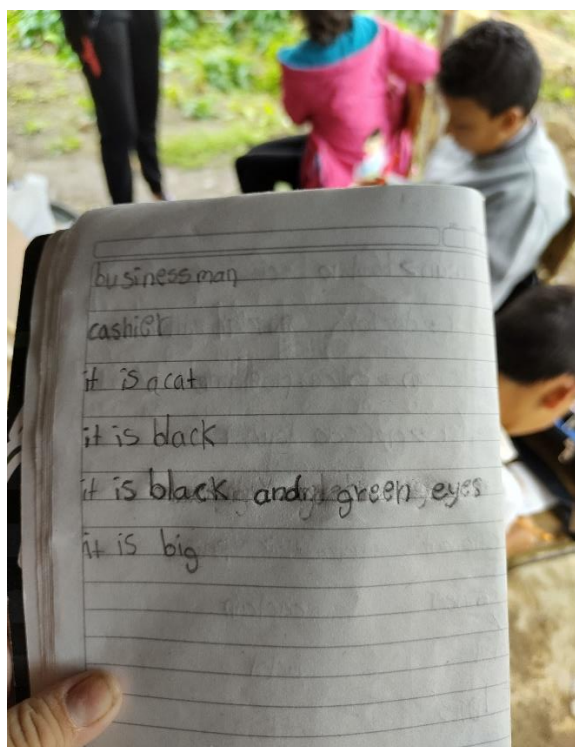 businessman
cashier
it is a cat
it is black
it is black and green eyes
it is big